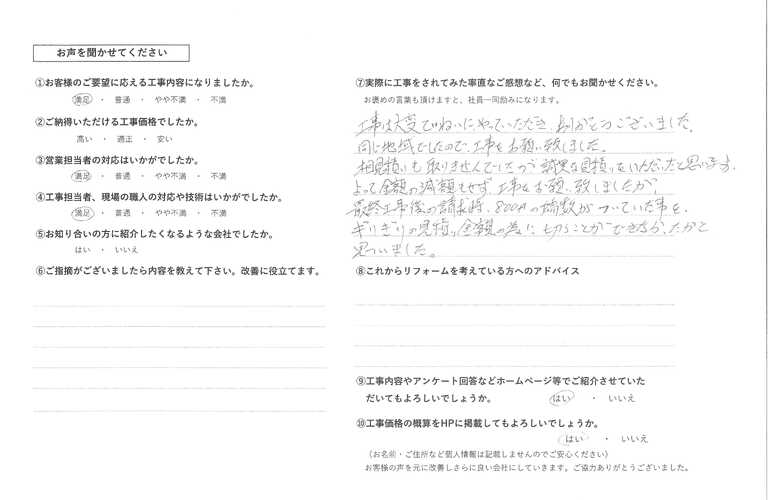 お声を聞かせてください
①お客様のご要望に応える工事内容になりましたか。
満足 ・ 普通 ・ やや不満 ・ 不満
②ご納得いただける工事価格でしたか。
高い ・ 適正 ・ 安い
③営業担当者の対応はいかがでしたか。
満足 ・ 普通 ・ やや不満 ・ 不満
④工事担当者、現場の職人の対応や技術はいかがでしたか。
満足 ・ 普通 ・ やや不満 ・ 不満
⑤お知り合いの方に紹介したくなるような会社でしたか。
はい ・ いいえ
⑥ご指摘がございましたら内容を教えて下さい。改善に役立てます。
⑦実際に工事をされてみた率直なご感想など、何でもお聞かせください。
お褒めの言葉も頂けますと、社員一同励みになります。
工事は大変ていねいにやっていただき、ありがとうございました。
同じ地域でしたので、工事をお願い致しました。
相見積りも取りませんでしたので誠実な見積りをいただいたと思います。
よって金額の減額もせず、工事をお願い致しましたが、
最終工事後の請求時、800円の端数がついていた事を、
ギリギリの見積り金額の為に切ることができなかったかと
思っいました。
⑧これからリフォームを考えている方へのアドバイス
⑨工事内容やアンケート回答などホームページ等でご紹介させていた
だいてもよろしいでしょうか。 はい ・ いいえ
⑩工事価格の概算をHPに掲載してもよろしいでしょうか。
はい ・ いいえ
（お名前・ご住所など個人情報は記載しませんのでご安心ください）
お客様の声を元に改善しさらに良い会社にしていきます。ご協力ありがとうございました。